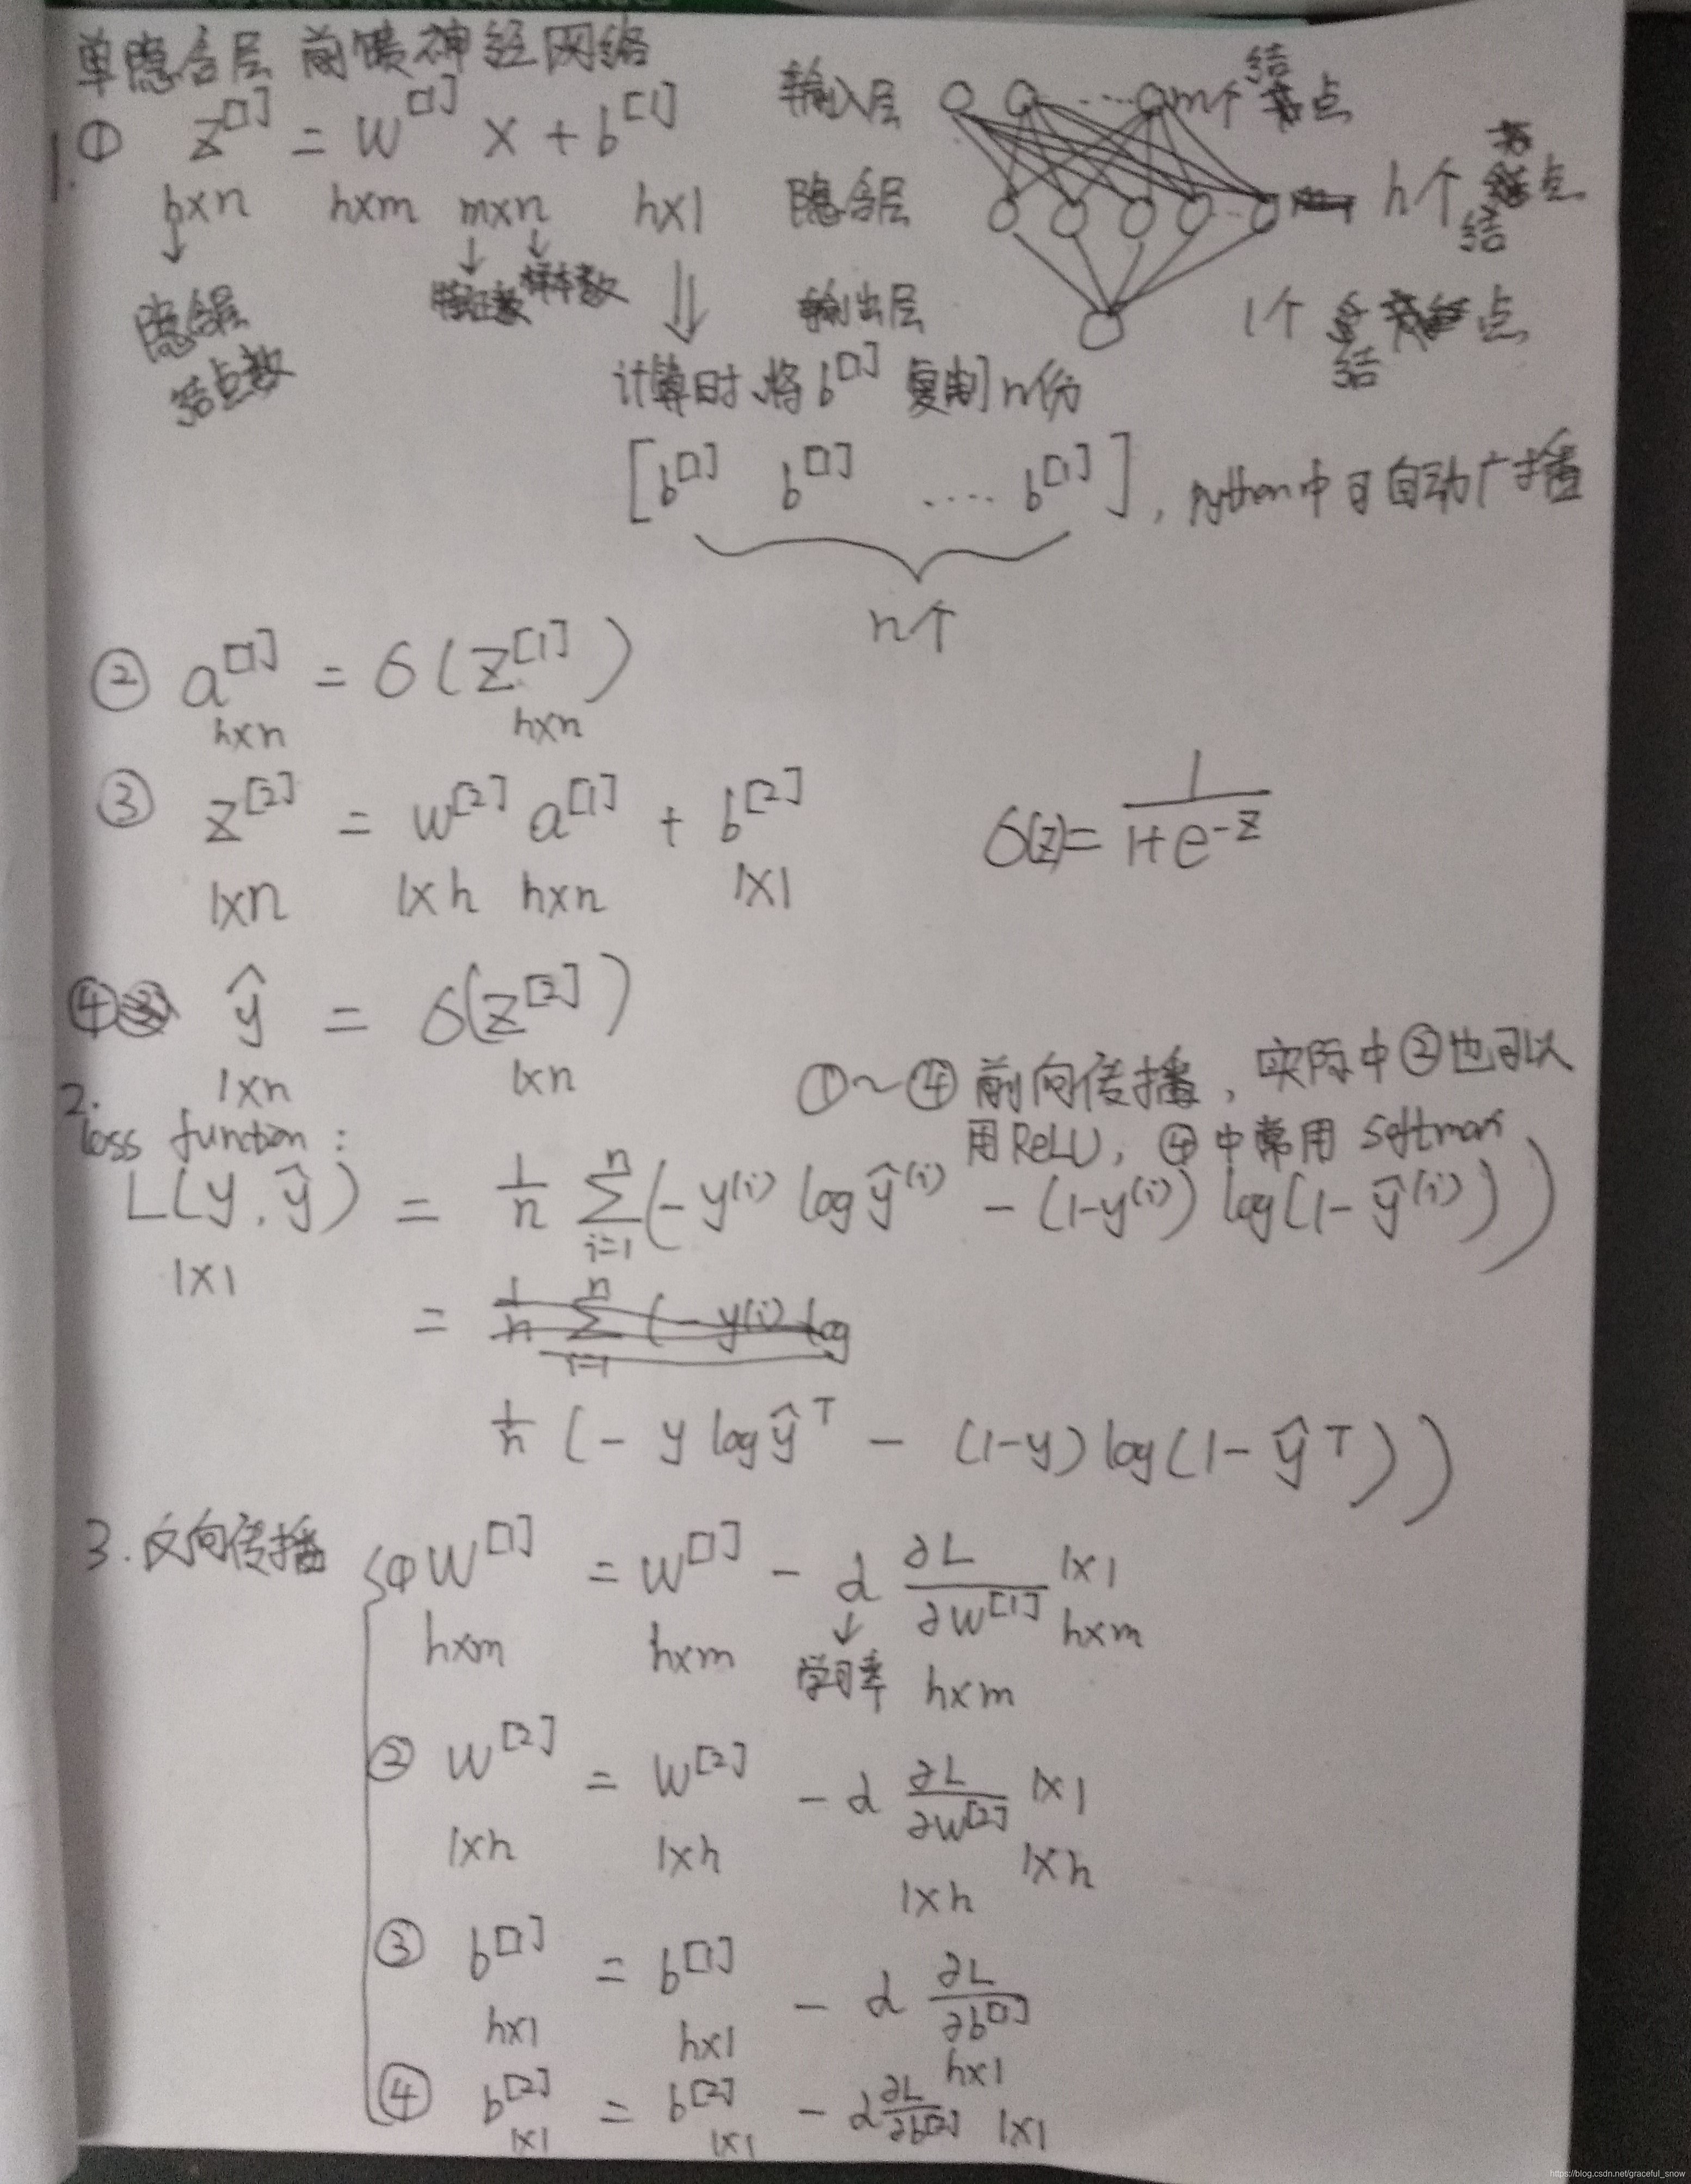 单隐含层 前馈神经网络
1. ① z^[1] = w^[1] x + b^[1]
h×n h×m m×n h×1
隐含层 结点数
特征数 样本数
计算时,将 b^[1] 复制 n份
[b^[1] b^[1] .... b^[1]], python中自动广播
n个
输入层 ...... m个结点
隐含层 h个结点
输出层 1个结点
② a^[1] = σ(z^[1])
h×n h×n
③ z^[2] = w^[2] a^[1] + b^[2]
1×n 1×h h×n 1×1
σ(z)= 1/(1+e^-z)
④ ŷ = σ(z^[2])
1×n 1×n
①~④ 前向传播, 实际中②也可以
用ReLU, ④中常用 softmax
2.
loss function:
L(y, ŷ) = 1/n Σ_{i=1}^n (-y^(i) log ŷ^(i) - (1-y^(i)) log(1-ŷ^(i)))
1×1
= 1/n (- y log ŷ^T - (1-y) log(1- ŷ^T))
3. 反向传播
① w^[1] = w^[1] - α ∂L/∂w^[1] 1×1 h×m
h×m h×m 学习率 h×m
② w^[2] = w^[2] - α ∂L/∂w^[2] 1×1 1×h
1×h 1×h 1×h
③ b^[1] = b^[1] - α ∂L/∂b^[1]
h×1 h×1 h×1
④ b^[2] = b^[2] - α ∂L/∂b^[2] 1×1
1×1 1×1
https://blog.csdn.net/graceful_snow